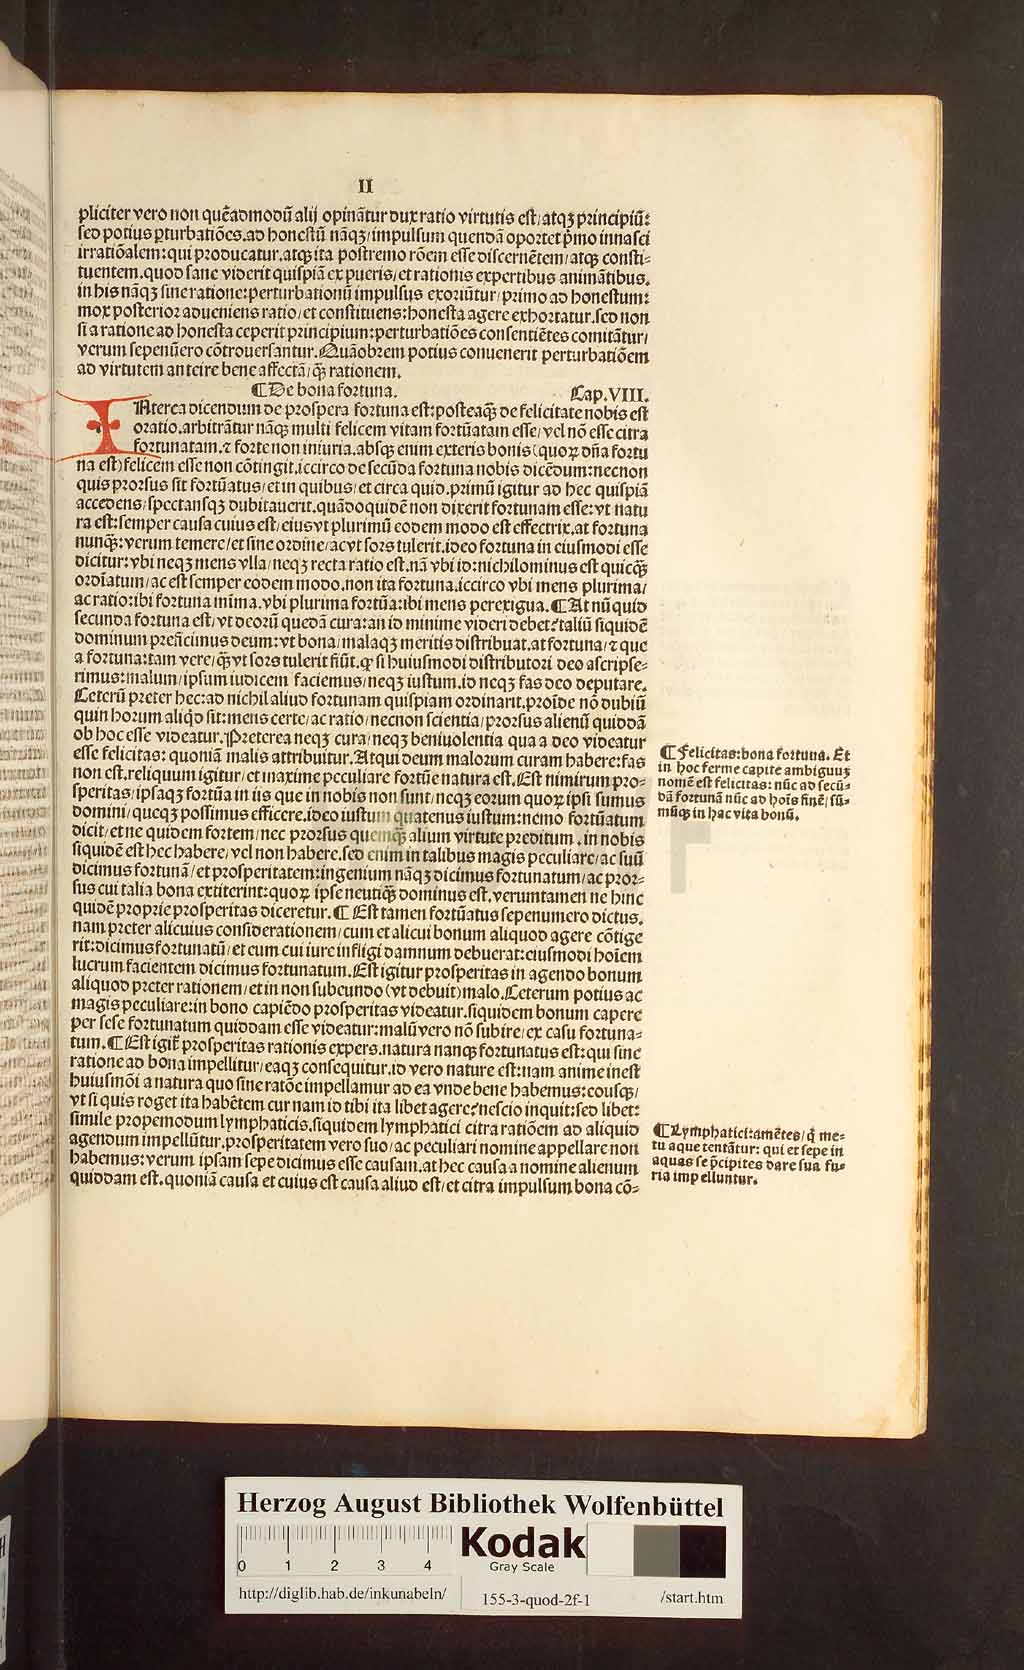 II
pliciter vero non quēadmodū alij opinātur dux ratio virtutis est/ atqꝫ principiū:
sed potius ꝑturbatiões. ad honestū nāqꝫ/ impulsum quendā oportet pͥmo innasci
irratiõalem: qui producatur. atqꝫ ita postremo rõem esse discernētem/ atqꝫ consti⸗
tuentem. quod sane viderit quispiā ex pueris/ et rationis expertibus animātibus.
in his nāqꝫ sine ratione: perturbationū impulsus exoriūtur/ primo ad honestum:
mox posterior adueniens ratio/ et constituens: honesta agere exhortatur. sed non
si a ratione ad honesta ceperit principium: perturbatiões consentiētes comitātur/
verum sepenūero cõtrouersantur. Quãobrem potius conuenerit perturbatiõem
ad virtutem anteire bene affectā/ qꝫ̄ rationem.
¶ De bona fortuna. Cap. VIII.
INterea dicendum de prospera fortuna est: posteaqꝫ̄ de felicitate nobis est
oratio. arbitrātur nāqꝫ multi felicem vitam fortūatam esse/ vel nõ esse citra
fortunatam. ⁊ forte non iniuria. absqꝫ enim exteris bonis (quoꝝ dña fortu
na est) felicem esse non cõtingit. iccirco de secūda fortuna nobis dicēdum: necnon
quis prorsus sit fortūatus/ et in quibus/ et circa quid. primū igitur ad hec quispiā
accedens/ spectansqꝫ dubitauerit. quādoquidē non dixerit fortunam esse: vt natu
ra est: semper causa cuius est/ eius vt plurimū eodem modo est effectrix. at fortuna
nunqꝫ̄: verum temere/ et sine ordine/ ac vt sors tulerit. ideo fortuna in eiusmodi esse
dicitur: vbi neqꝫ mens vlla/ neqꝫ recta ratio est. nā vbi id: nichilominus est quicqꝫ̄
ordīatum/ ac est semper eodem modo. non ita fortuna. iccirco vbi mens plurima/
ac ratio: ibi fortuna inīma. vbi plurima fortūa: ibi mens perexigua. ¶ At nū quid
secunda fortuna est/ vt deorū quedā cura: an id minime videri debet? taliū siquidē
dominum preñcimus deum: vt bona/ malaqꝫ meritis distribuat. at fortuna/ ⁊ que
a fortuna: tam vere/ qꝫ̄ vt sors tulerit fiūt. qꝫ si huiusmodi distributori deo ascripse⸗
rimus: malum/ ipsum iudicem faciemus/ neqꝫ iustum. id neqꝫ fas deo deputare.
Ceterū preter hec: ad nichil aliud fortunam quispiam ordinarit. proīde nõ dubiū
quin horum aliqͥd sit: mens certe/ ac ratio/ necnon scientia/ prorsus alienū quiddā
ob hoc esse videatur. Preterea neqꝫ cura/ neqꝫ beniuolentia qua a deo videatur
esse felicitas: quoniā malis attribuitur. Atqui deum malorum curam habere: fas
non est. reliquum igitur/ et maxime peculiare fortūe natura est. Est nimirum pro⸗
speritas/ ipsaqꝫ fortūa in iis que in nobis non sunt/ neqꝫ eorum quoꝝ ipsi sumus
domini/ queqꝫ possimus efficere. ideo iustum quatenus iustum: nemo fortūatum
dicit/ et ne quidem fortem/ nec prorsus quemqꝫ̄ alium virtute preditum. in nobis
siquidē est hec habere/ vel non habere. sed enim in talibus magis peculiare/ ac suū
dicimus fortunā/ et prosperitatem: ingenium nāqꝫ dicimus fortunatum/ ac pror⸗
sus cui talia bona extiterint: quoꝝ ipse neutiqꝫ̄ dominus est. veruntamen ne hinc
quidē proprie prosperitas diceretur. ¶ Est tamen fortūatus sepenumero dictus.
nam preter alicuius considerationem/ cum et alicui bonum aliquod agere cõtige
rit: dicimus fortunatū/ et cum cui iure infligi damnum debuerat: eiusmodi hoīem
lucrum facientem dicimus fortunatum. Est igitur prosperitas in agendo bonum
aliquod preter rationem/ et in non subeundo (vt debuit) malo. Ceterum potius ac
magis peculiare: in bono capiēdo prosperitas videatur. siquidem bonum capere
per sese fortunatum quiddam esse videatur: malū vero nõ subire/ ex casu fortuna⸗
tum. ¶ Est igiť prosperitas rationis expers. natura nanqꝫ fortunatus est: qui sine
ratione ad bona impellitur/ eaqꝫ consequitur. id vero nature est: nam anime inest
huiusmõi a natura quo sine ratõe impellamur ad ea vnde bene habemus: eousqꝫ/
vt si quis roget ita habētem cur nam id tibi ita libet agere? nescio inquit: sed libet:
simile propemodum lymphaticis. siquidem lymphatici citra ratiõem ad aliquid
agendum impellūtur. prosperitatem vero suo/ ac peculiari nomine appellare non
habemus: verum ipsam sepe dicimus esse causam. at hec causa a nomine alienum
quiddam est. quoniā causa et cuius est causa aliud est/ et citra impulsum bona cõ⸗
¶ Felicitas: bona fortuna. Et
in hoc ferme capite ambiguuꝫ
nomē est felicitas: nūc ad secū⸗
dā fortunā nūc ad hoīs finē/ sū⸗
mūqꝫ in hac vita bonū.
¶ Lymphatici: amētes/ qͥ me⸗
tu aque tentātur: qui et sepe in
aquas se p̄cipites dare sua fu⸗
ria impelluntur.
HAB
Herzog August Bibliothek Wolfenbüttel
0 1 2 3 4
Kodak
Gray Scale
http://diglib.hab.de/inkunabeln/ 155-3-quod-2f-1 /start.htm